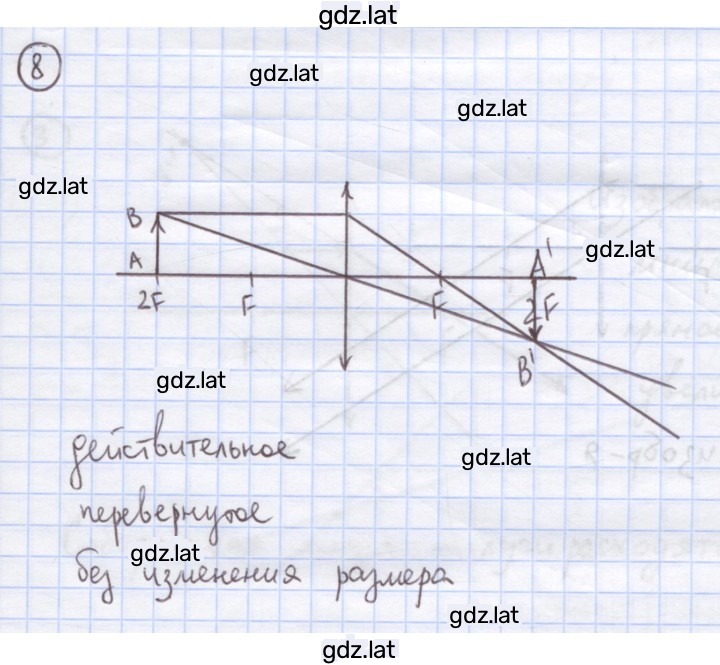 gdz.lat
8
gdz.lat
gdz.lat
gdz.lat
B
A'
gdz.lat
A
2F
F
F
2F
B'
gdz.lat
действительное
gdz.lat
перевернутое
gdz.lat
без изменения размера
gdz.lat
gdz.lat